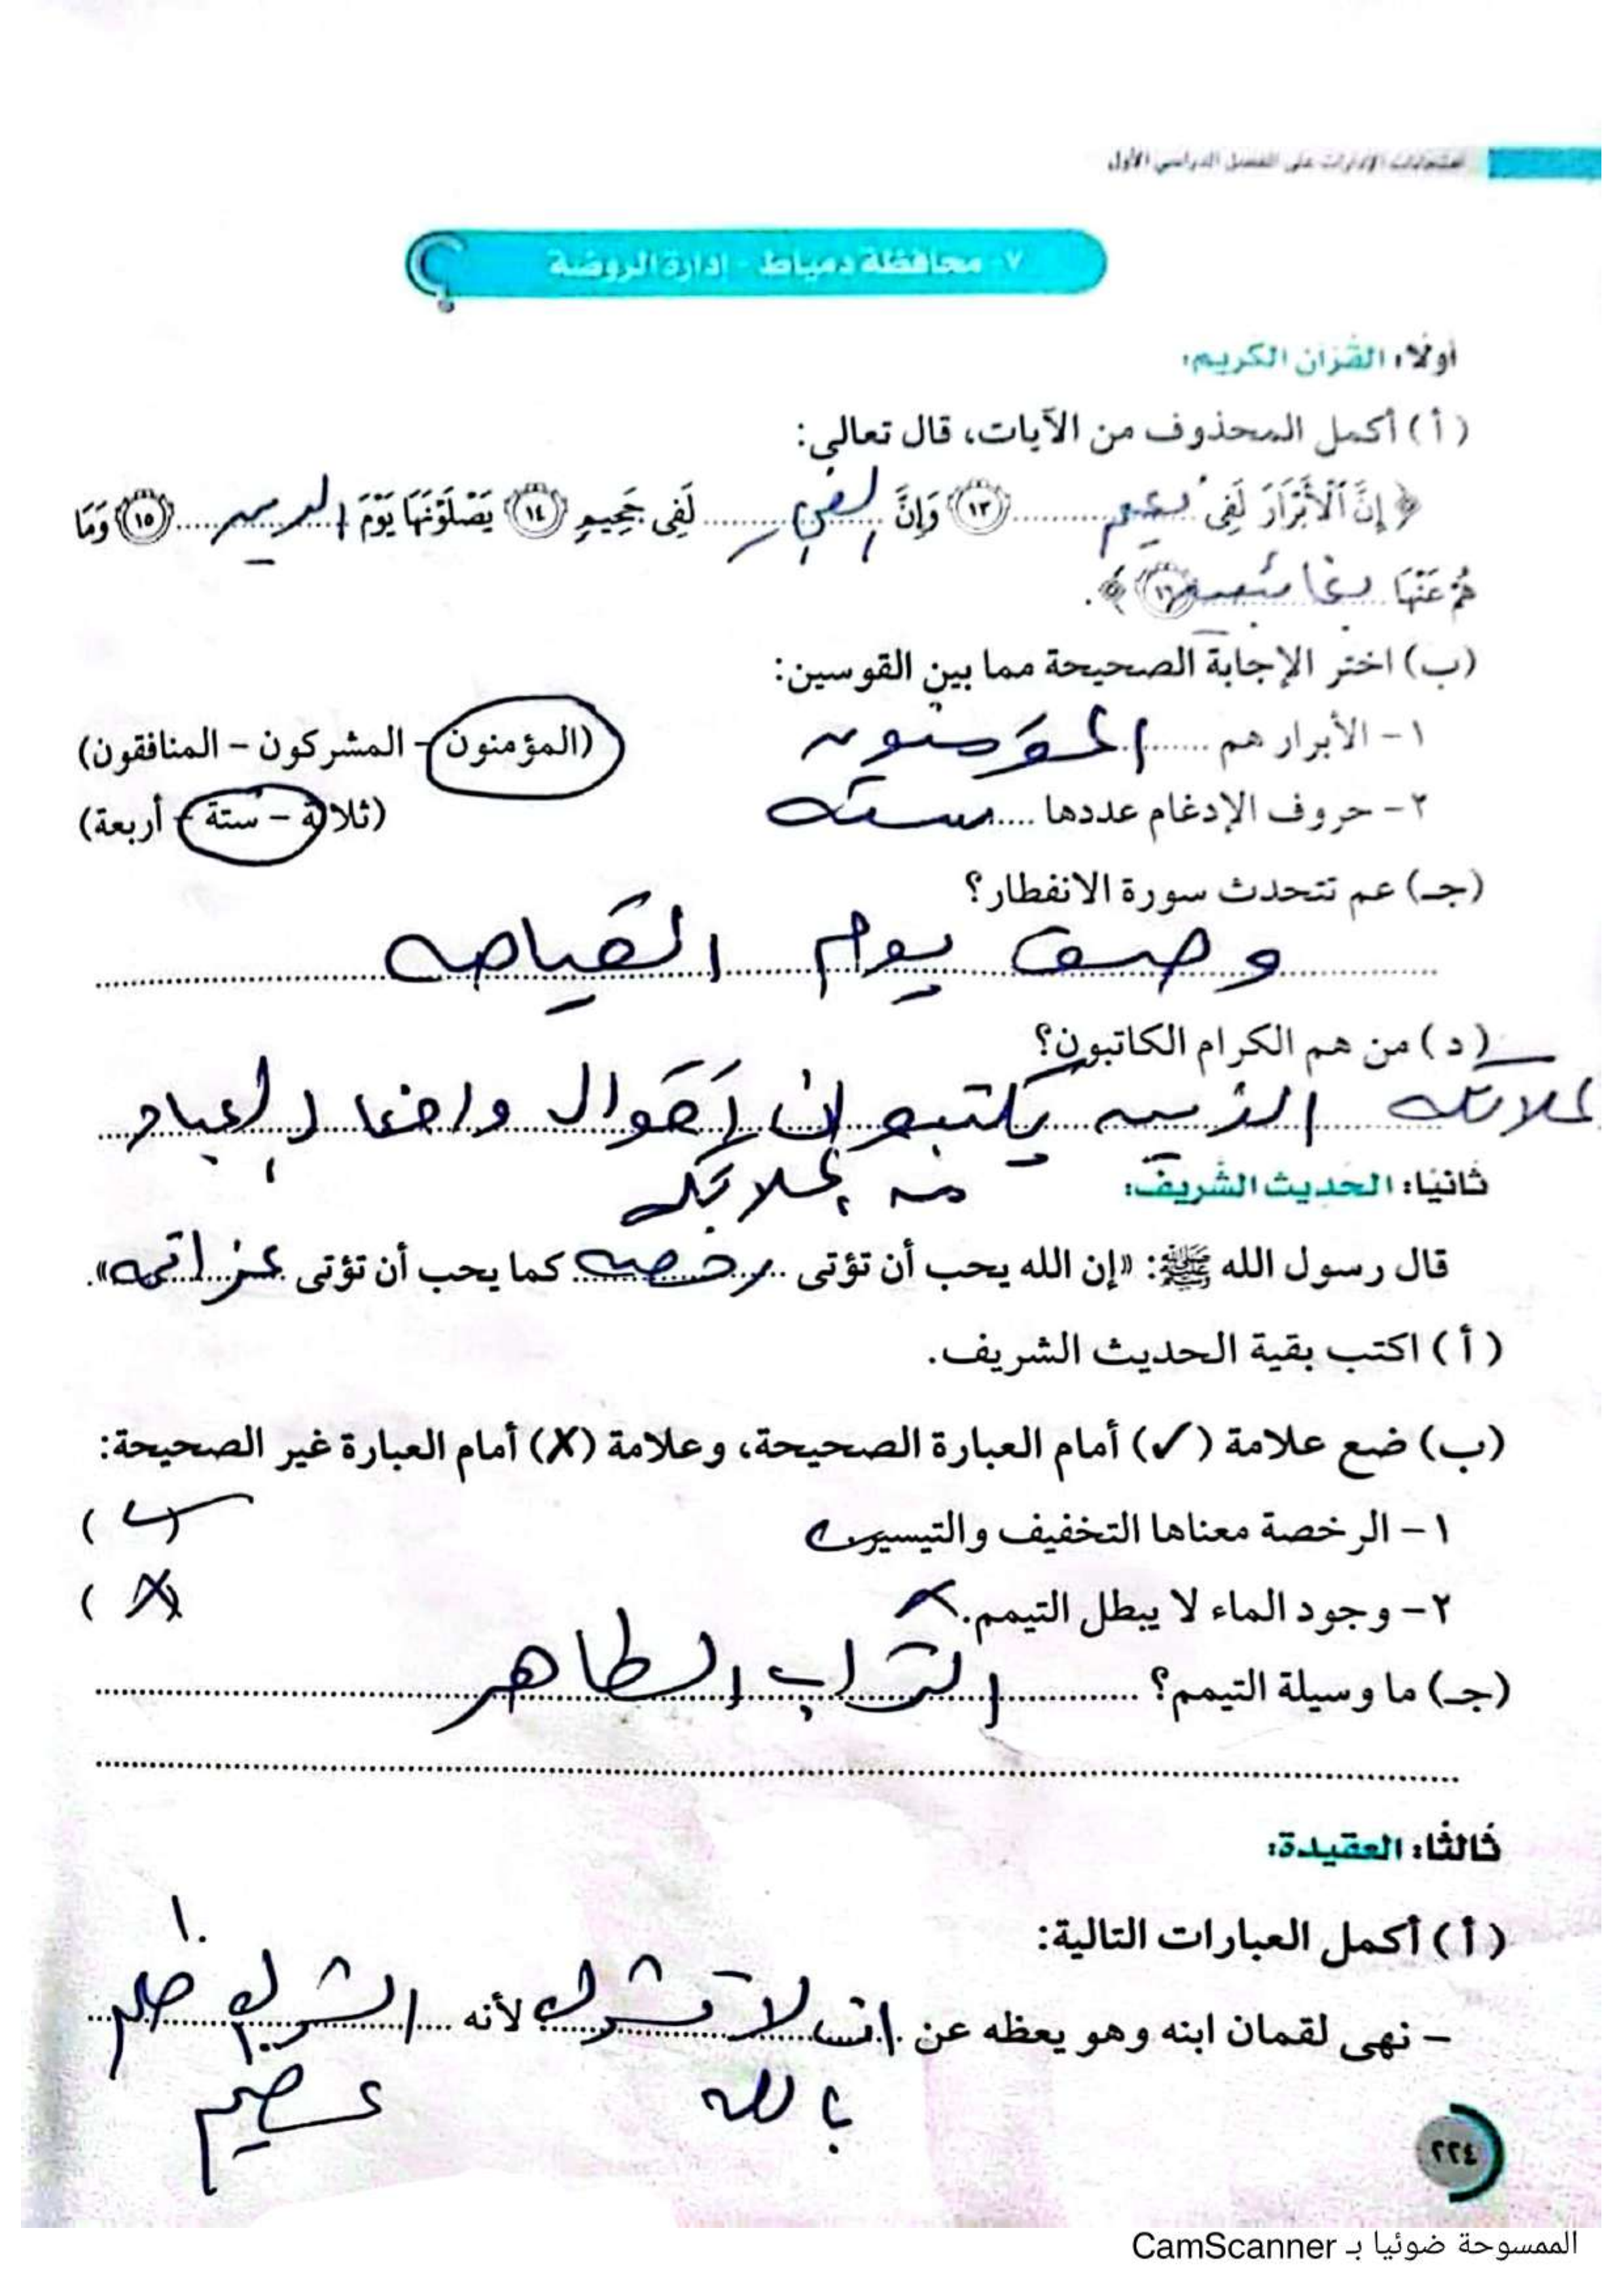 امتحانات الإدارات على الفصل الدراسي الأول
٧- محافظة دمياط - إدارة الروضة
أولًا: القرآن الكريم:
( أ ) أكمل المحذوف من الآيات، قال تعالى:
﴿ إِنَّ ٱلْأَبْرَارَ لَفِى نعيم ١٣ وَإِنَّ الفجار لَفِى جَحِيمٍ ١٤ يَصْلَوْنَهَا يَوْمَ الدين ١٥ وَمَا
هُمْ عَنْهَا بغائبين ١٦ ﴾.
(ب) اختر الإجابة الصحيحة مما بين القوسين:
١- الأبرار هم المؤمنون (المؤمنون - المشركون - المنافقون)
٢- حروف الإدغام عددها سته (ثلاثة - ستة - أربعة)
(جـ) عم تتحدث سورة الانفطار؟
وصف يوم القيامه
( د ) من هم الكرام الكاتبون؟
الذين يكتبون اقوال وافعال العباد
من
ثانيًا: الحديث الشريف:
قال رسول الله ﷺ: «إن الله يحب أن تؤتى رخصه كما يحب أن تؤتى عزائمه».
( أ ) اكتب بقية الحديث الشريف.
(ب) ضع علامة (✓) أمام العبارة الصحيحة، وعلامة (X) أمام العبارة غير الصحيحة:
١- الرخصة معناها التخفيف والتيسير. ( ✓ )
٢- وجود الماء لا يبطل التيمم. X ( X )
(جـ) ما وسيلة التيمم؟ التراب الطاهر
ثالثًا: العقيدة:
( أ ) أكمل العبارات التالية:
- نهى لقمان ابنه وهو يعظه عن لا تشرك لأنه الشرك ظلم
بالله عظيم
٢٢٤
الممسوحة ضوئيا بـ CamScanner